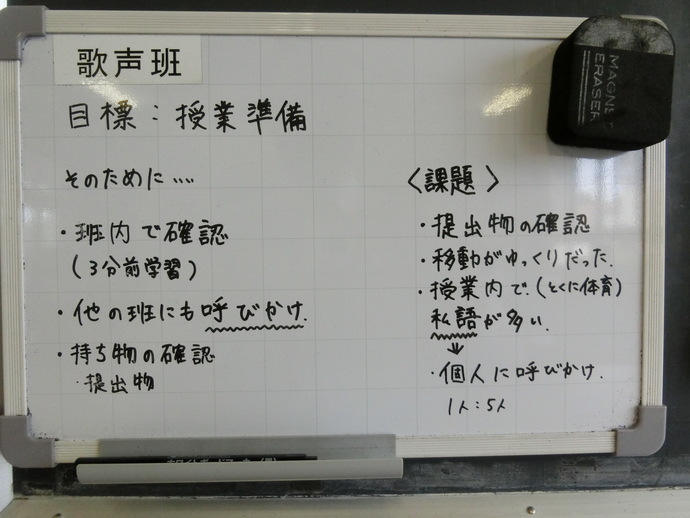 歌声班
目標：授業準備
そのために‥‥
・班内で確認
(3分前学習)
・他の班にも呼びかけ.
・持ち物の確認
・提出物
〈課題〉
・提出物の確認
・移動がゆっくりだった.
・授業内で.(とくに体育)
私語が多い.
↓
・個人に呼びかけ.
1人:5人
MAGNET
ERASER